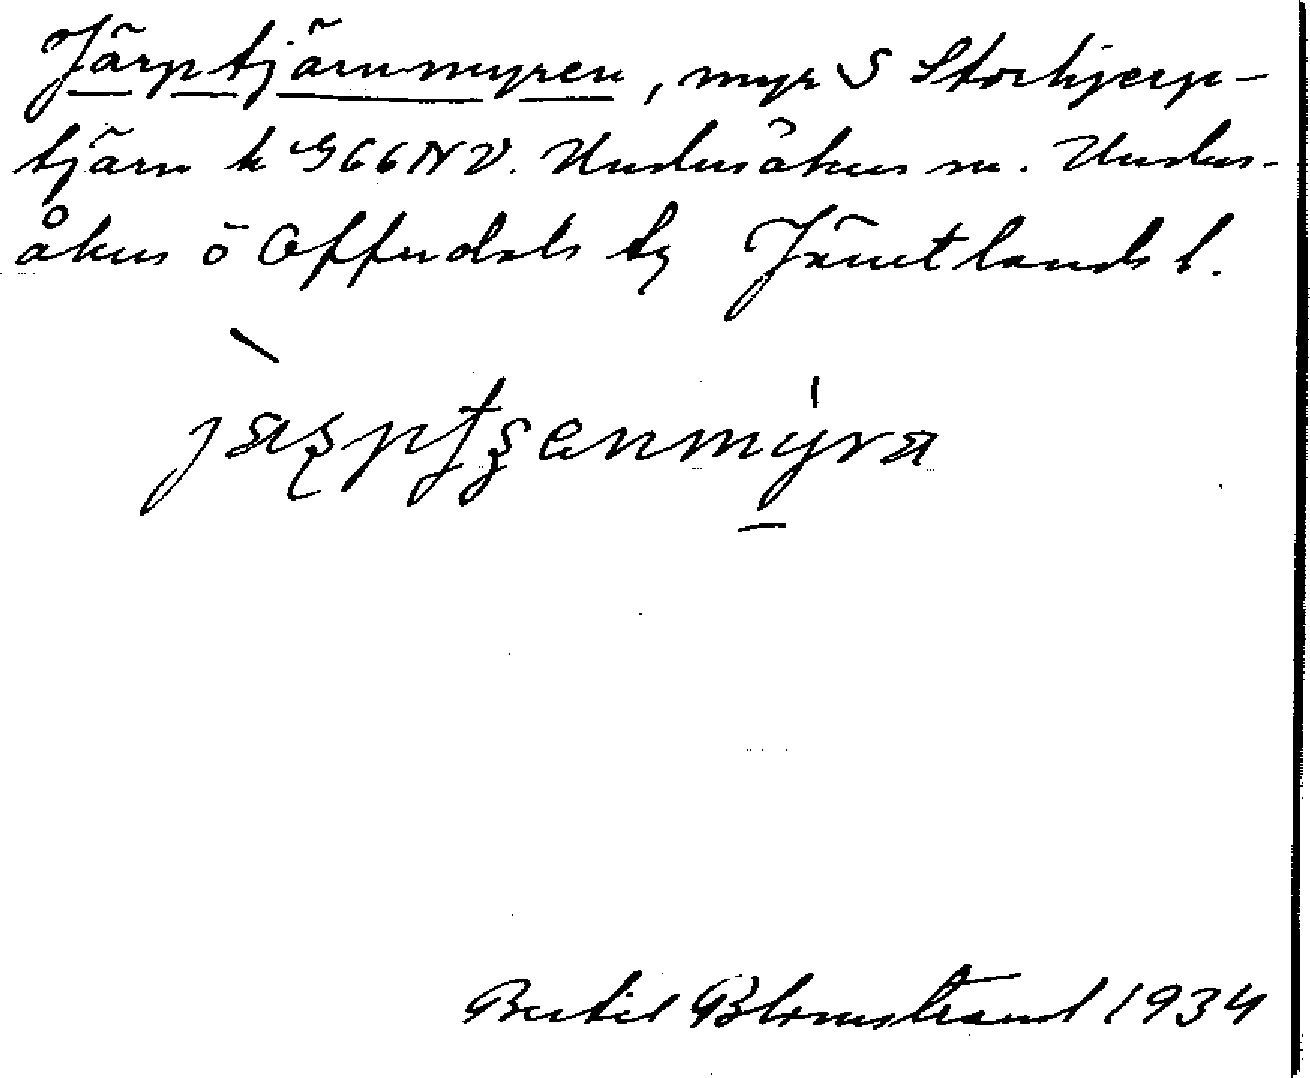 Järptjärnmyren, myr S Storhjerp-
tjärn k G66NV. Undersåkers sn. Unders-
åkers o Offerdals tg Jämtlands l.
Bertil Blomstrand 1934